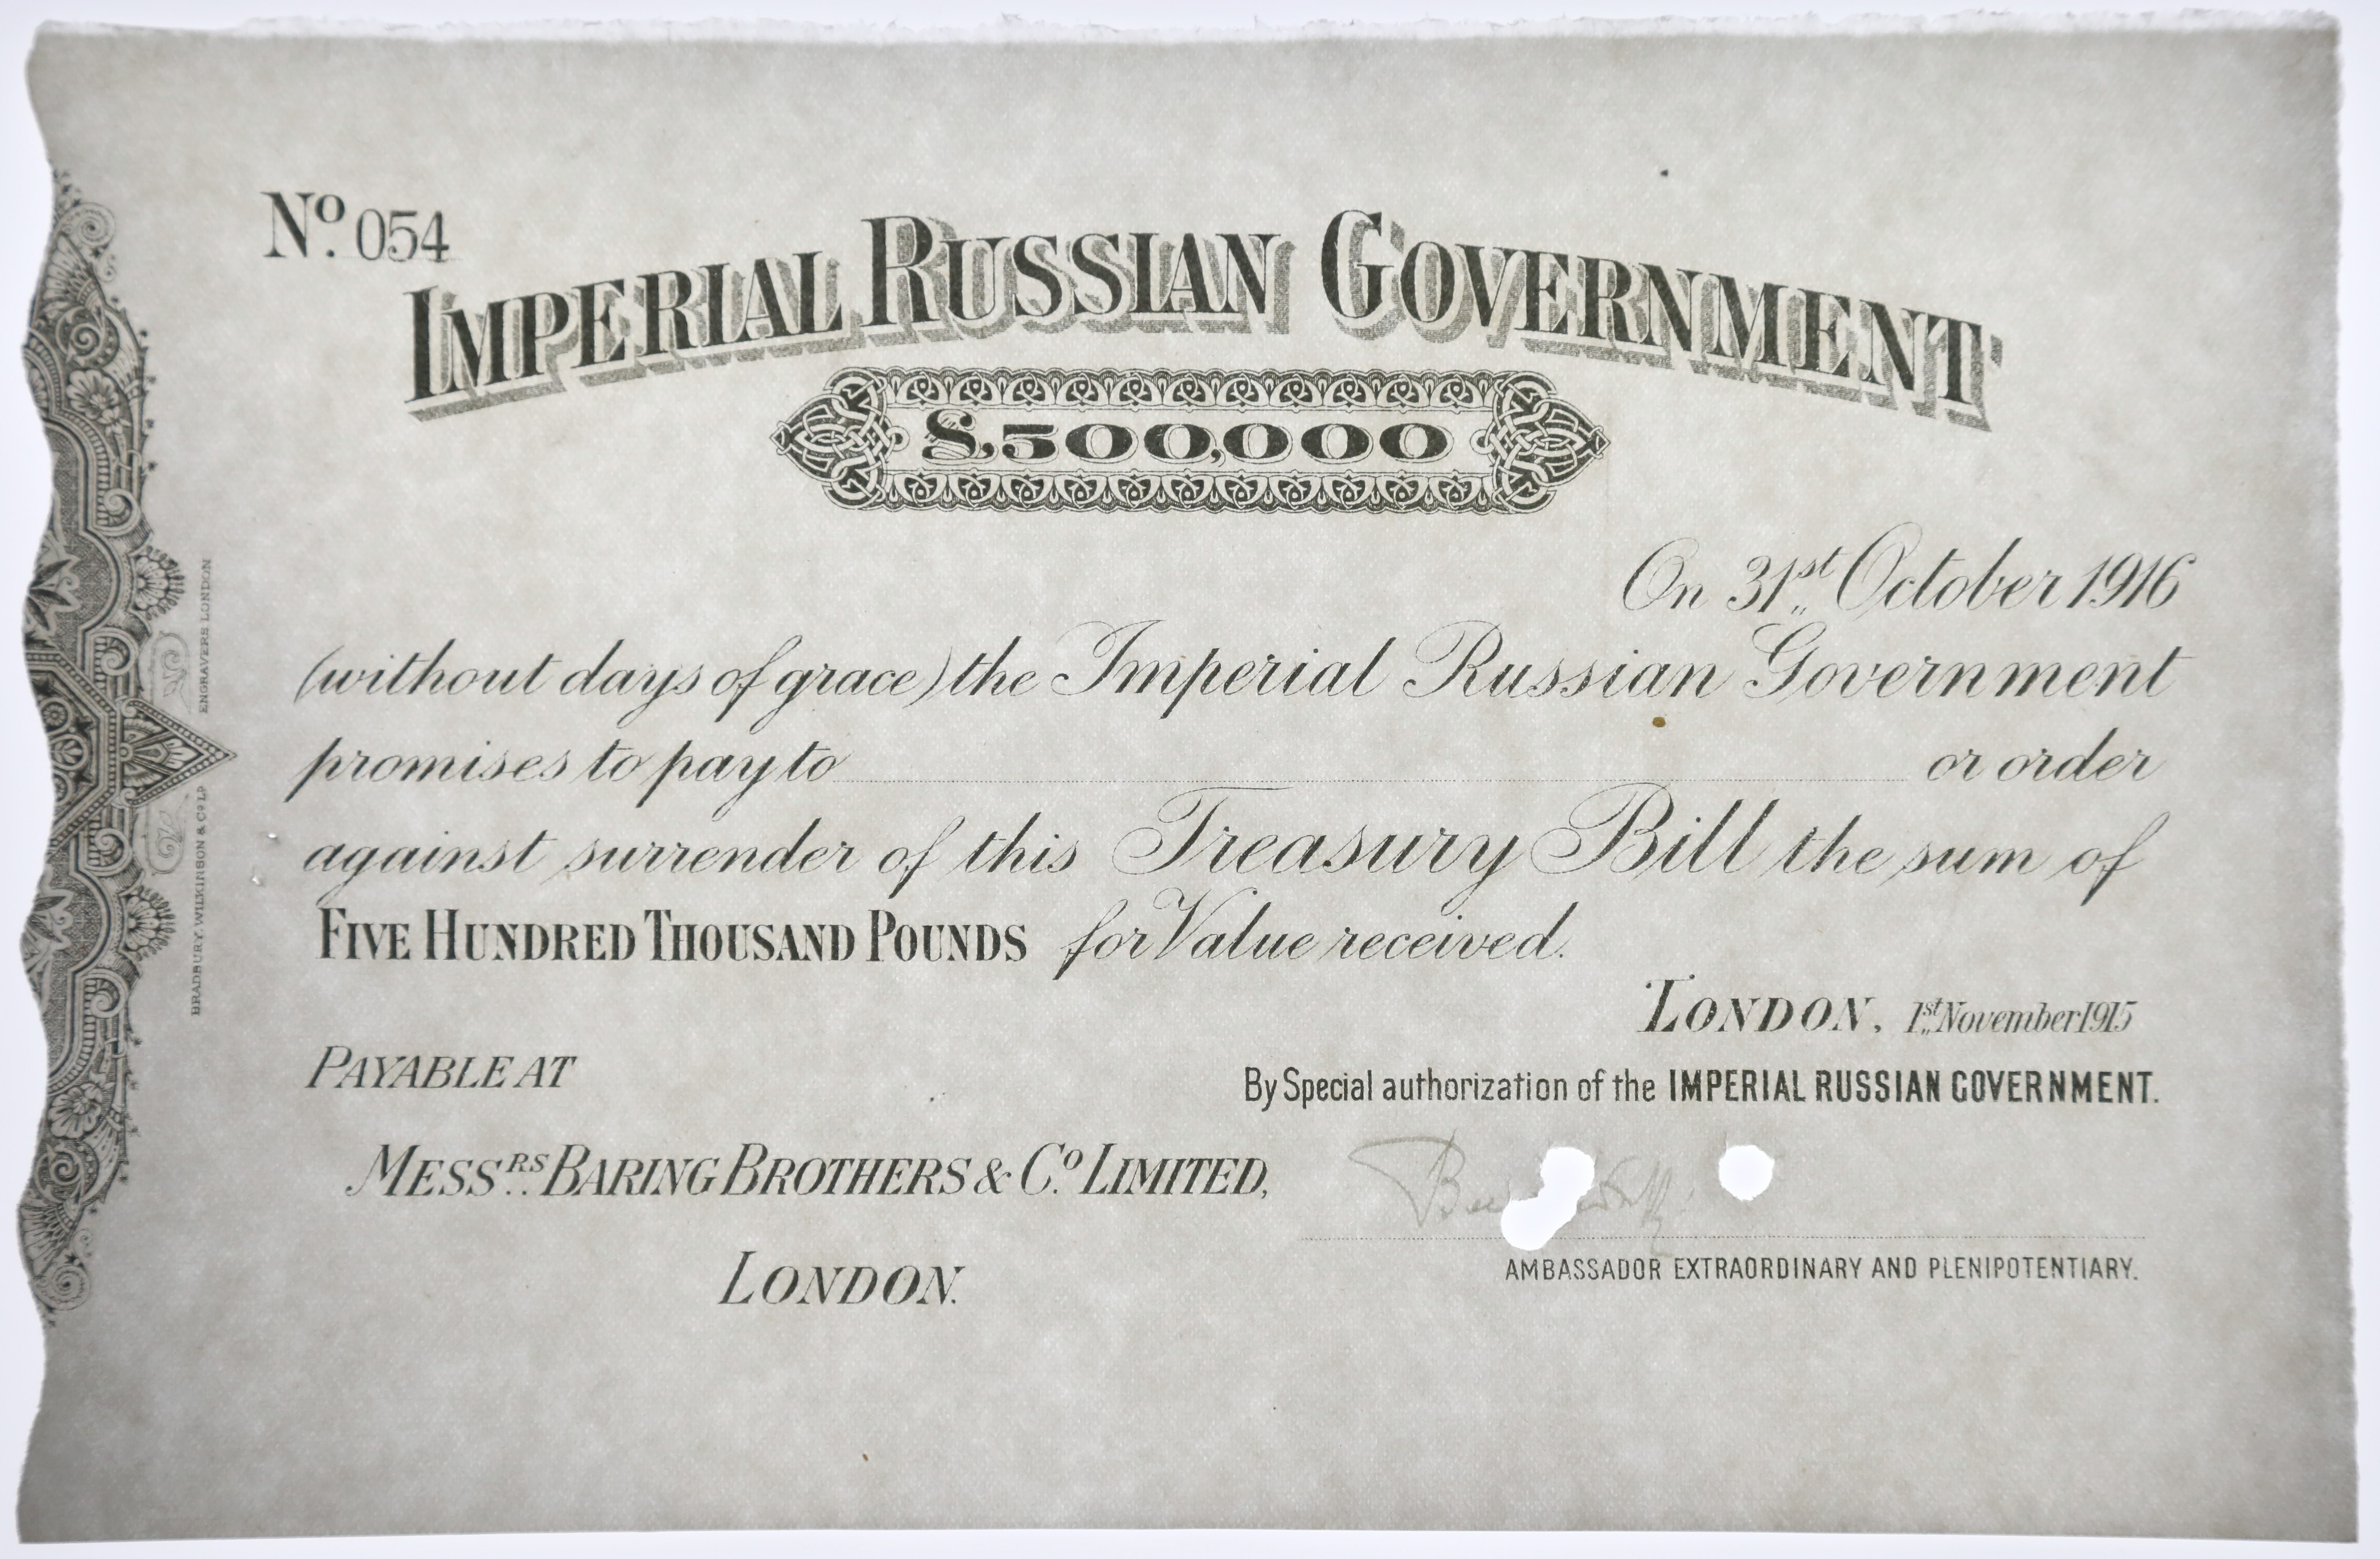 Nº. 054
IMPERIAL RUSSIAN GOVERNMENT
£500,000
On 31st October 1916
(without days of grace) the Imperial Russian Government
promises to pay to or order
against surrender of this Treasury Bill the sum of
FIVE HUNDRED THOUSAND POUNDS for Value received.
LONDON, 1st November 1915
PAYABLE AT
By Special authorization of the IMPERIAL RUSSIAN GOVERNMENT.
MESSRS. BARING BROTHERS & Cº. LIMITED,
LONDON.
AMBASSADOR EXTRAORDINARY AND PLENIPOTENTIARY.
BRADBURY, WILKINSON & Cº Lᴰ ENGRAVERS LONDON